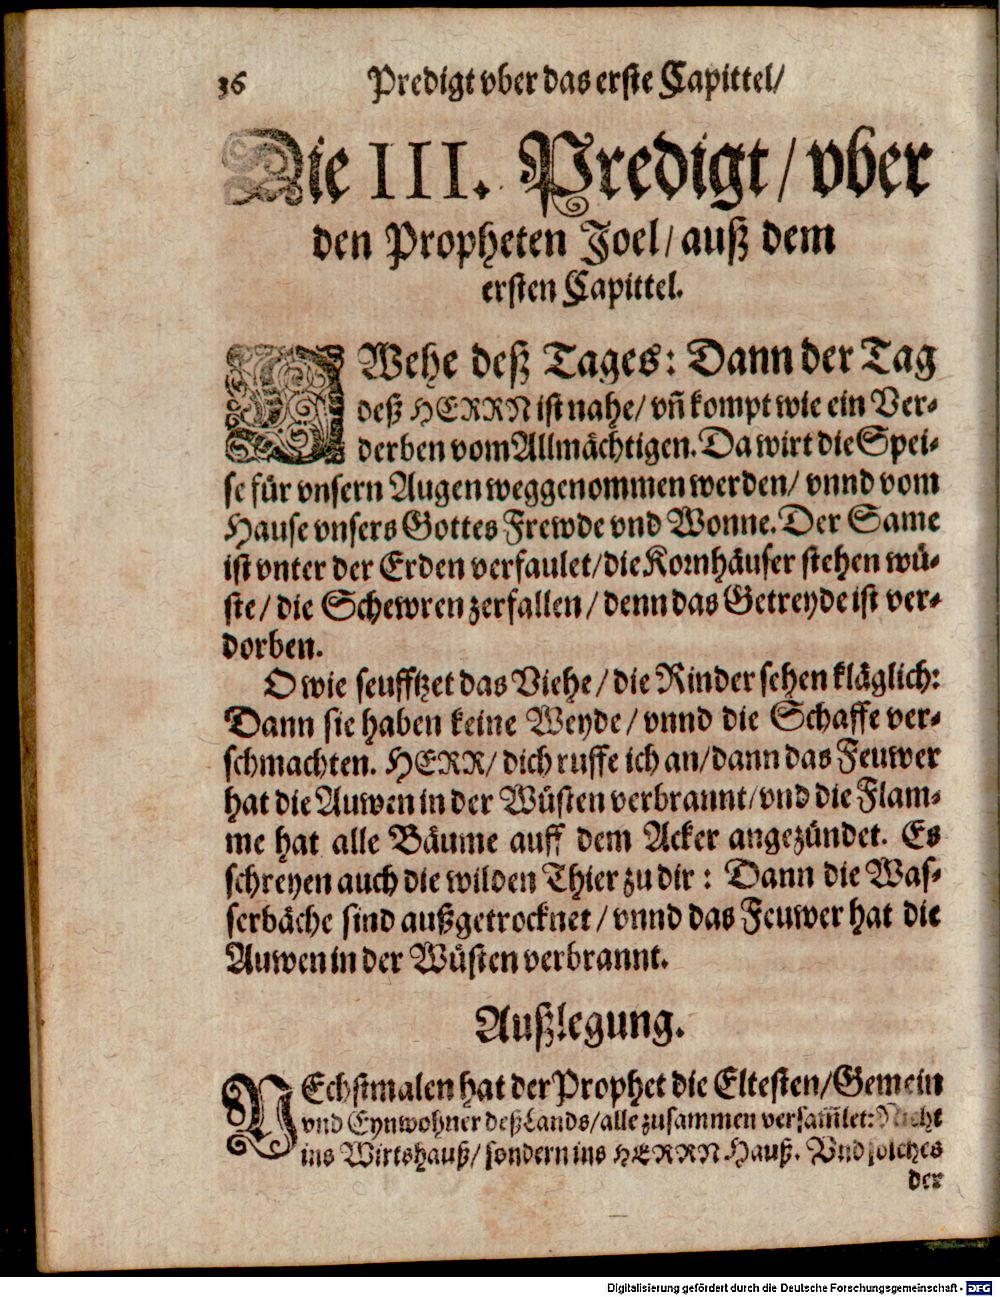 36 Predigt vber das erste Capittel/
Die III. Predigt/ vber
den Propheten Joel/ auß dem
ersten Capittel.
O Wehe deß Tages: Dann der Tag
deß HERRN ist nahe/ vñ kompt wie ein Ver-
derben vom Allmächtigen. Da wirt die Spei-
se für vnsern Augen weggenommen werden/ vnnd vom
Hause vnsers Gottes Frewde vnd Wonne. Der Same
ist vnter der Erden verfaulet/ die Kornhäuser stehen wü-
ste/ die Schewren zerfallen/ denn das Getreyde ist ver-
dorben.
O wie seufftzet das Viehe/ die Rinder sehen kläglich:
Dann sie haben keine Weyde/ vnnd die Schaffe ver-
schmachten. HERR/ dich ruffe ich an/ dann das Feuwer
hat die Auwen in der Wüsten verbrannt/ vnd die Flam-
me hat alle Bäume auff dem Acker angezündet. Es
schreyen auch die wilden Thier zu dir: Dann die Was-
serbäche sind außgetrocknet/ vnnd das Feuwer hat die
Auwen in der Wüsten verbrannt.
Außlegung.
NEchstmalen hat der Prophet die Eltesten/ Gemein
vnd Eynwohner deß Lands/ alle zusammen versam̃let: Nicht
ins Wirtshauß/ sondern ins HERRN Hauß. Vnd solches
der
Digitalisierung gefördert durch die Deutsche Forschungsgemeinschaft - DFG